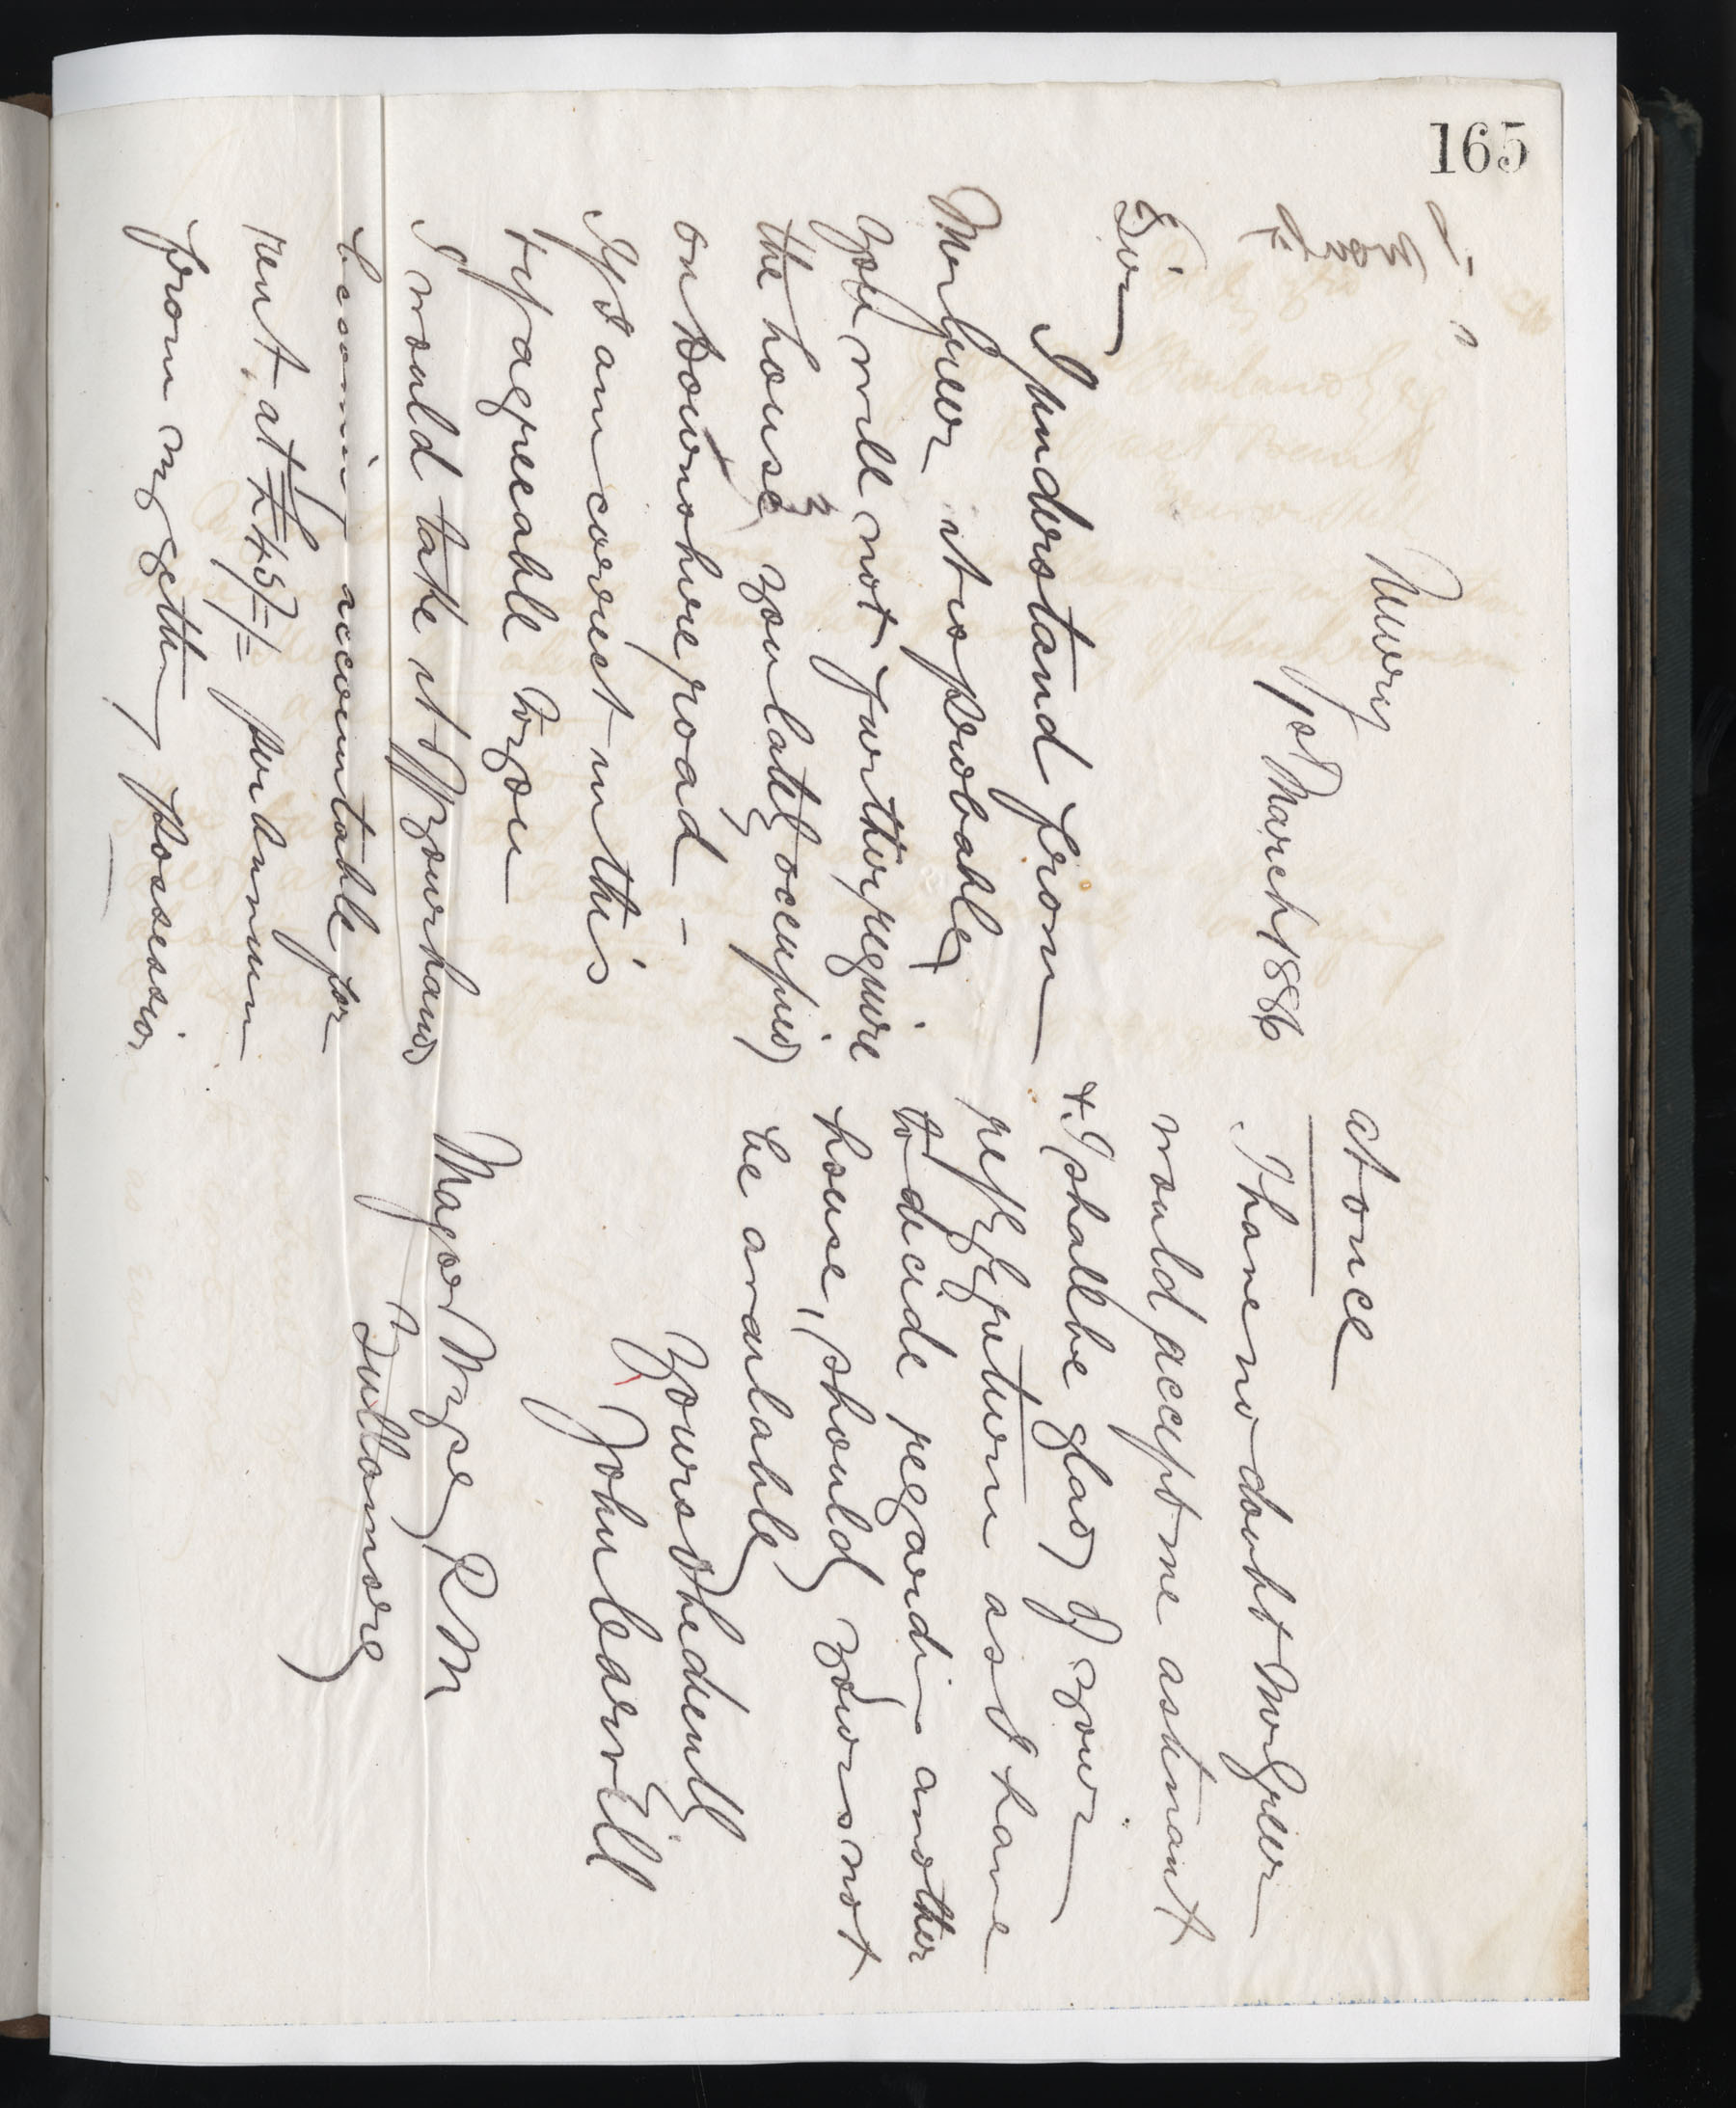 165
Newry
1st March 1886
Sir
I understand from
Mr Greer it is probable
you will not further require
the house you lately occupied
on Downshire road –
If I am correct in this
& if agreeable to you
I would take it off your hands
becoming accountable for
rent, at £45/-/- per annum
from my getting possession
at once
I have no doubt Mr Greer
would accept me as tenant
& I shall be glad of your
reply of return as I have
to decide regarding another
house, should yours not
be available
Yours obediently
John Carvill
Major Wyse R M
Tullamore